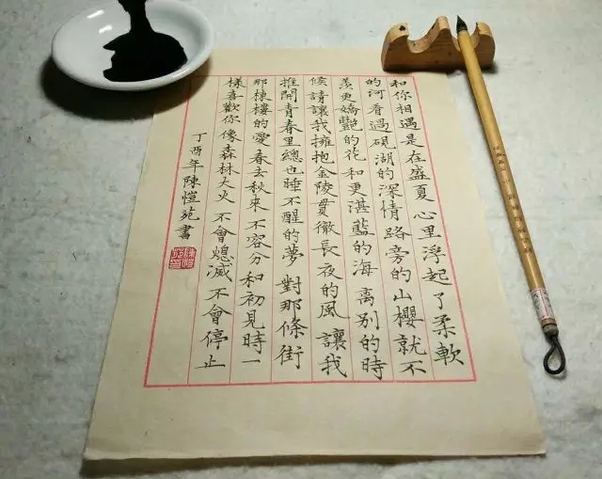 和你相遇是在盛夏 心里浮起了柔軟
的河 看過硯湖的深情 路旁的山櫻就不
羨更嬌艷的花和更湛藍的海 离別的時
候請讓我擁抱金陵貫徹長夜的風 讓我
推開青春里總也睡不醒的夢 對那條街
那棟樓的愛 春去秋來 不容分和初見時一
樣喜歡你 像森林大火 不會熄滅不會停止
丁酉年陳愷苑書